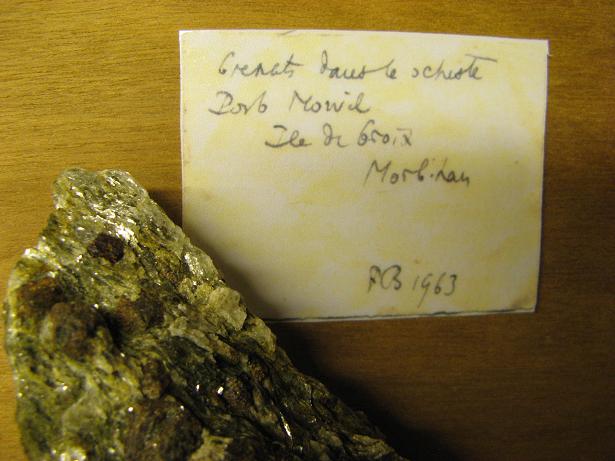 Grenats dans le schiste
Port Morvil
Ile de Groix
Morbihan
PB 1963